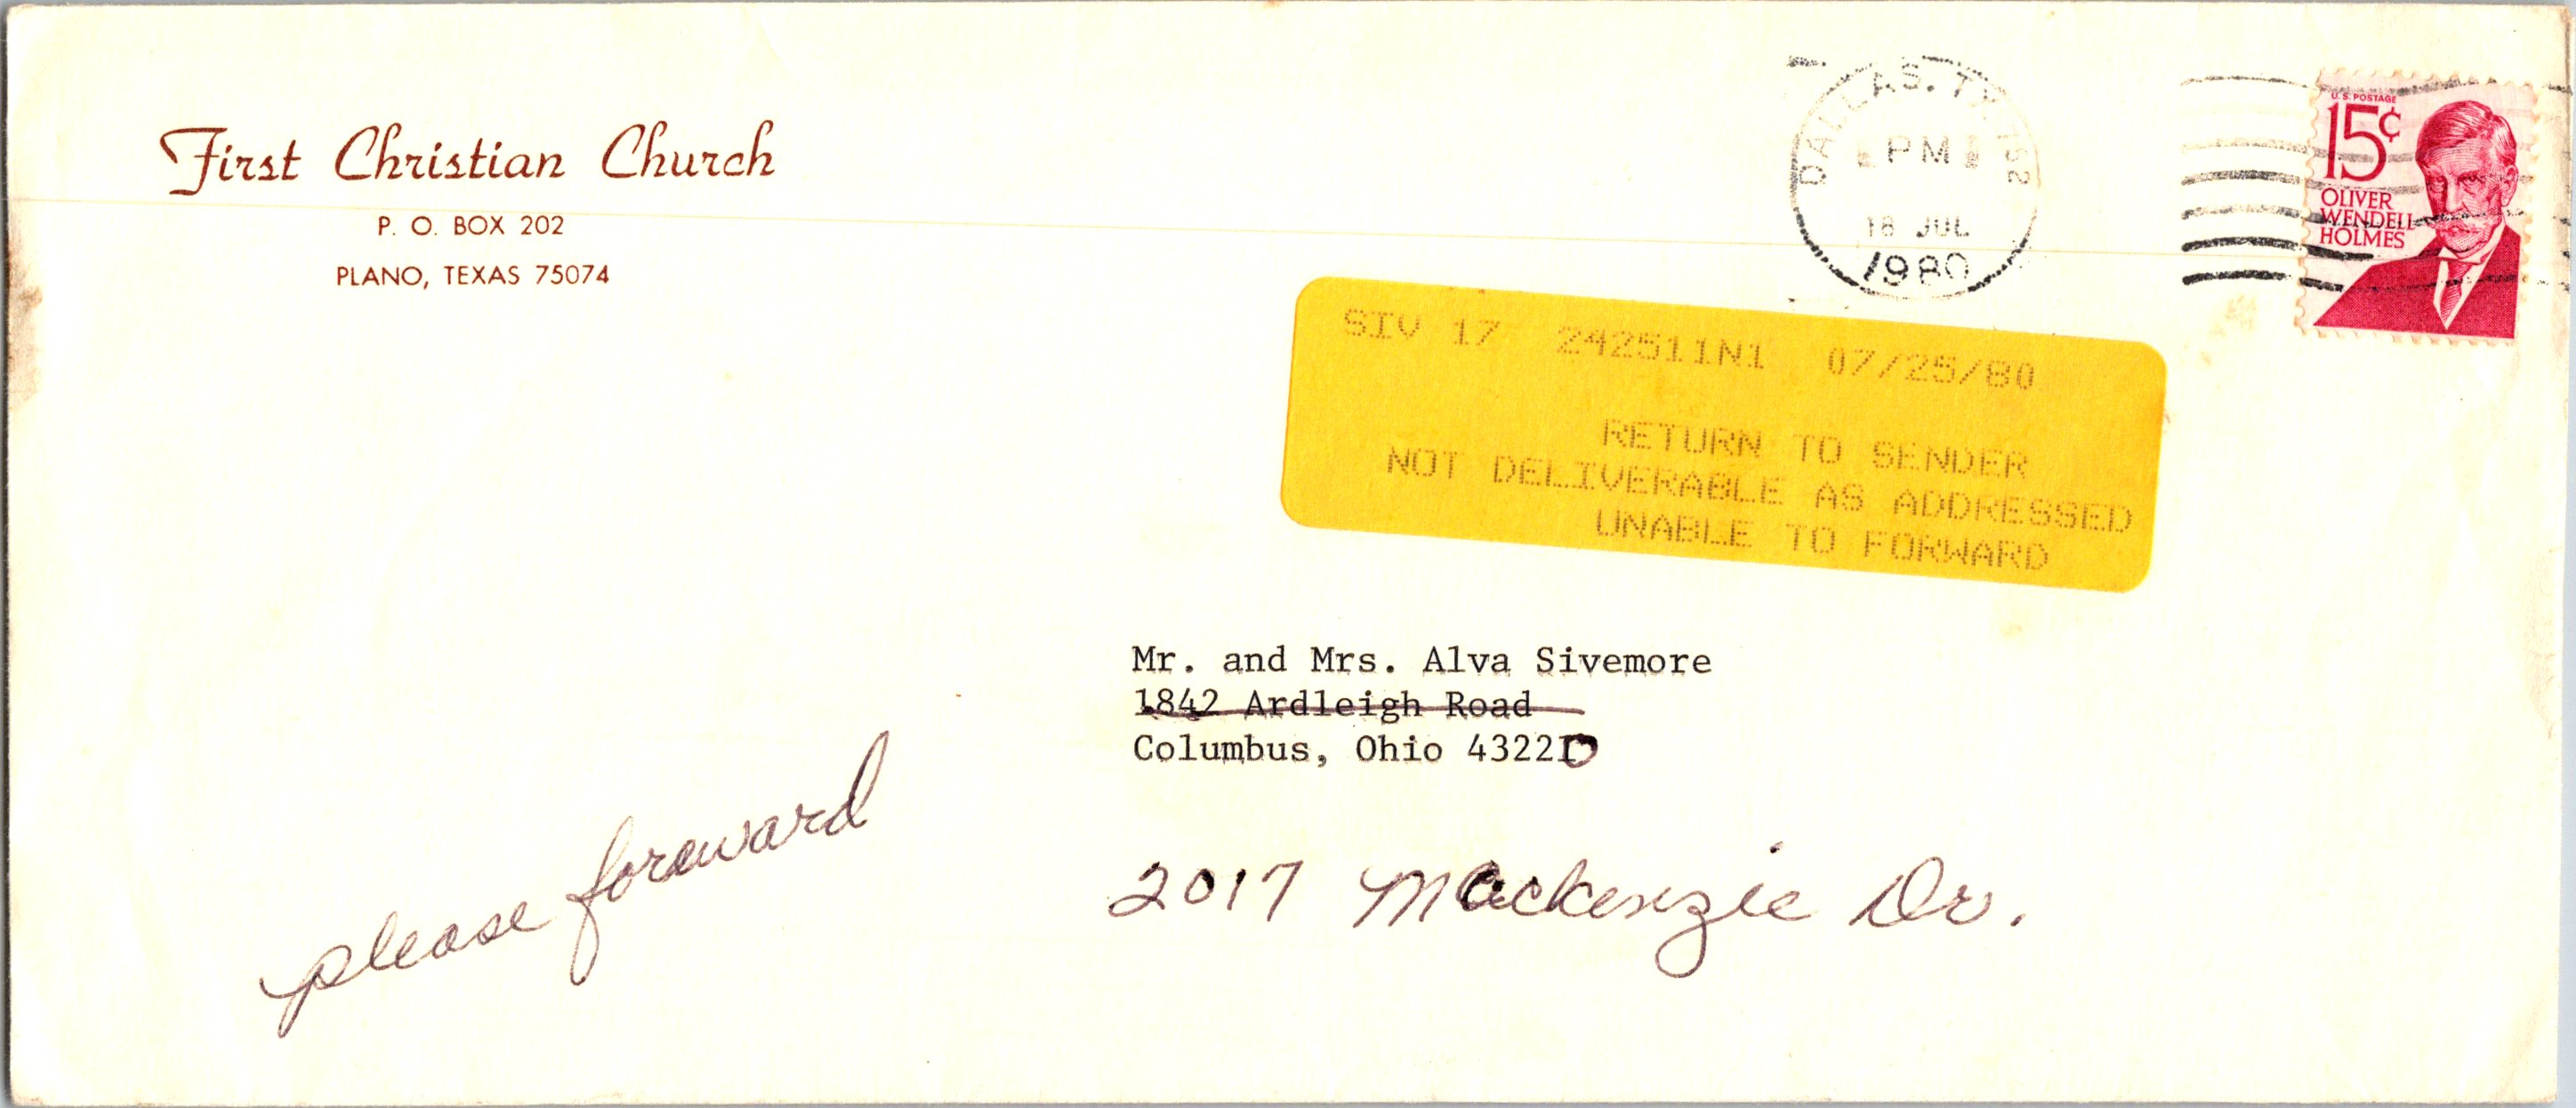 First Christian Church
P. O. BOX 202
PLANO, TEXAS 75074
DALLAS, TX 752
PM
18 JUL
1980
U.S. POSTAGE
15¢
OLIVER
WENDELL
HOLMES
SIV 17 242511N1 07/25/80
RETURN TO SENDER
NOT DELIVERABLE AS ADDRESSED
UNABLE TO FORWARD
Mr. and Mrs. Alva Sivemore
1842 Ardleigh Road
Columbus, Ohio 43220
please foreward
2017 Mackenzie Dr.